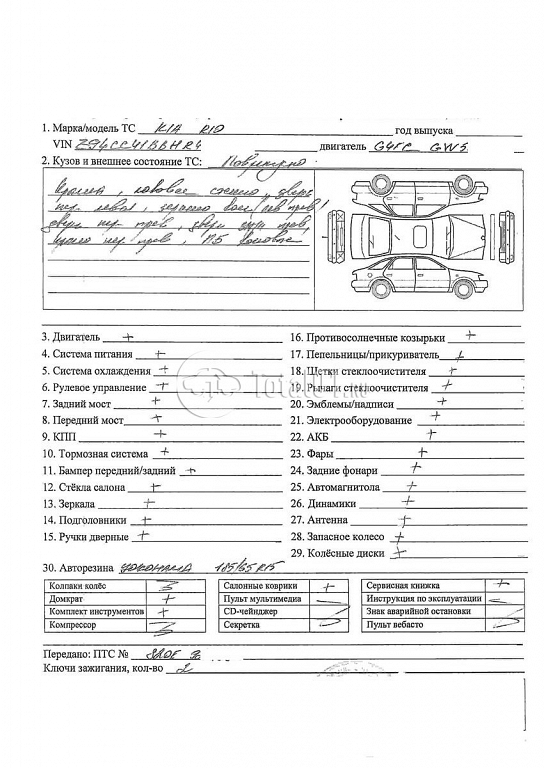 1. Марка/модель ТС KIA RIO год выпуска
VIN Z94CC41BBHR4 двигатель G4FC GW5
2. Кузов и внешнее состояние ТС:
лобовое стекло, дверь
3. Двигатель +
16. Противосолнечные козырьки +
4. Система питания +
17. Пепельницы/прикуриватель +
5. Система охлаждения +
18. Щетки стеклоочистителя +
6. Рулевое управление +
19. Рычаги стеклоочистителя +
7. Задний мост +
20. Эмблемы/надписи +
8. Передний мост +
21. Электрооборудование +
9. КПП +
22. АКБ +
10. Тормозная система +
23. Фары +
11. Бампер передний/задний +
24. Задние фонари +
12. Стёкла салона +
25. Автомагнитола +
13. Зеркала +
26. Динамики +
14. Подголовники +
27. Антенна +
15. Ручки дверные +
28. Запасное колесо +
29. Колёсные диски +
30. Авторезина YOKOHAMA 185/65 R15
Колпаки колёс Салонные коврики + Сервисная книжка +
Домкрат + Пульт мультимедиа – Инструкция по эксплуатации –
Комплект инструментов + CD-чейнджер Знак аварийной остановки
Компрессор Секретка Пульт вебасто
Передано: ПТС №
Ключи зажигания, кол-во 2
Total01.ru